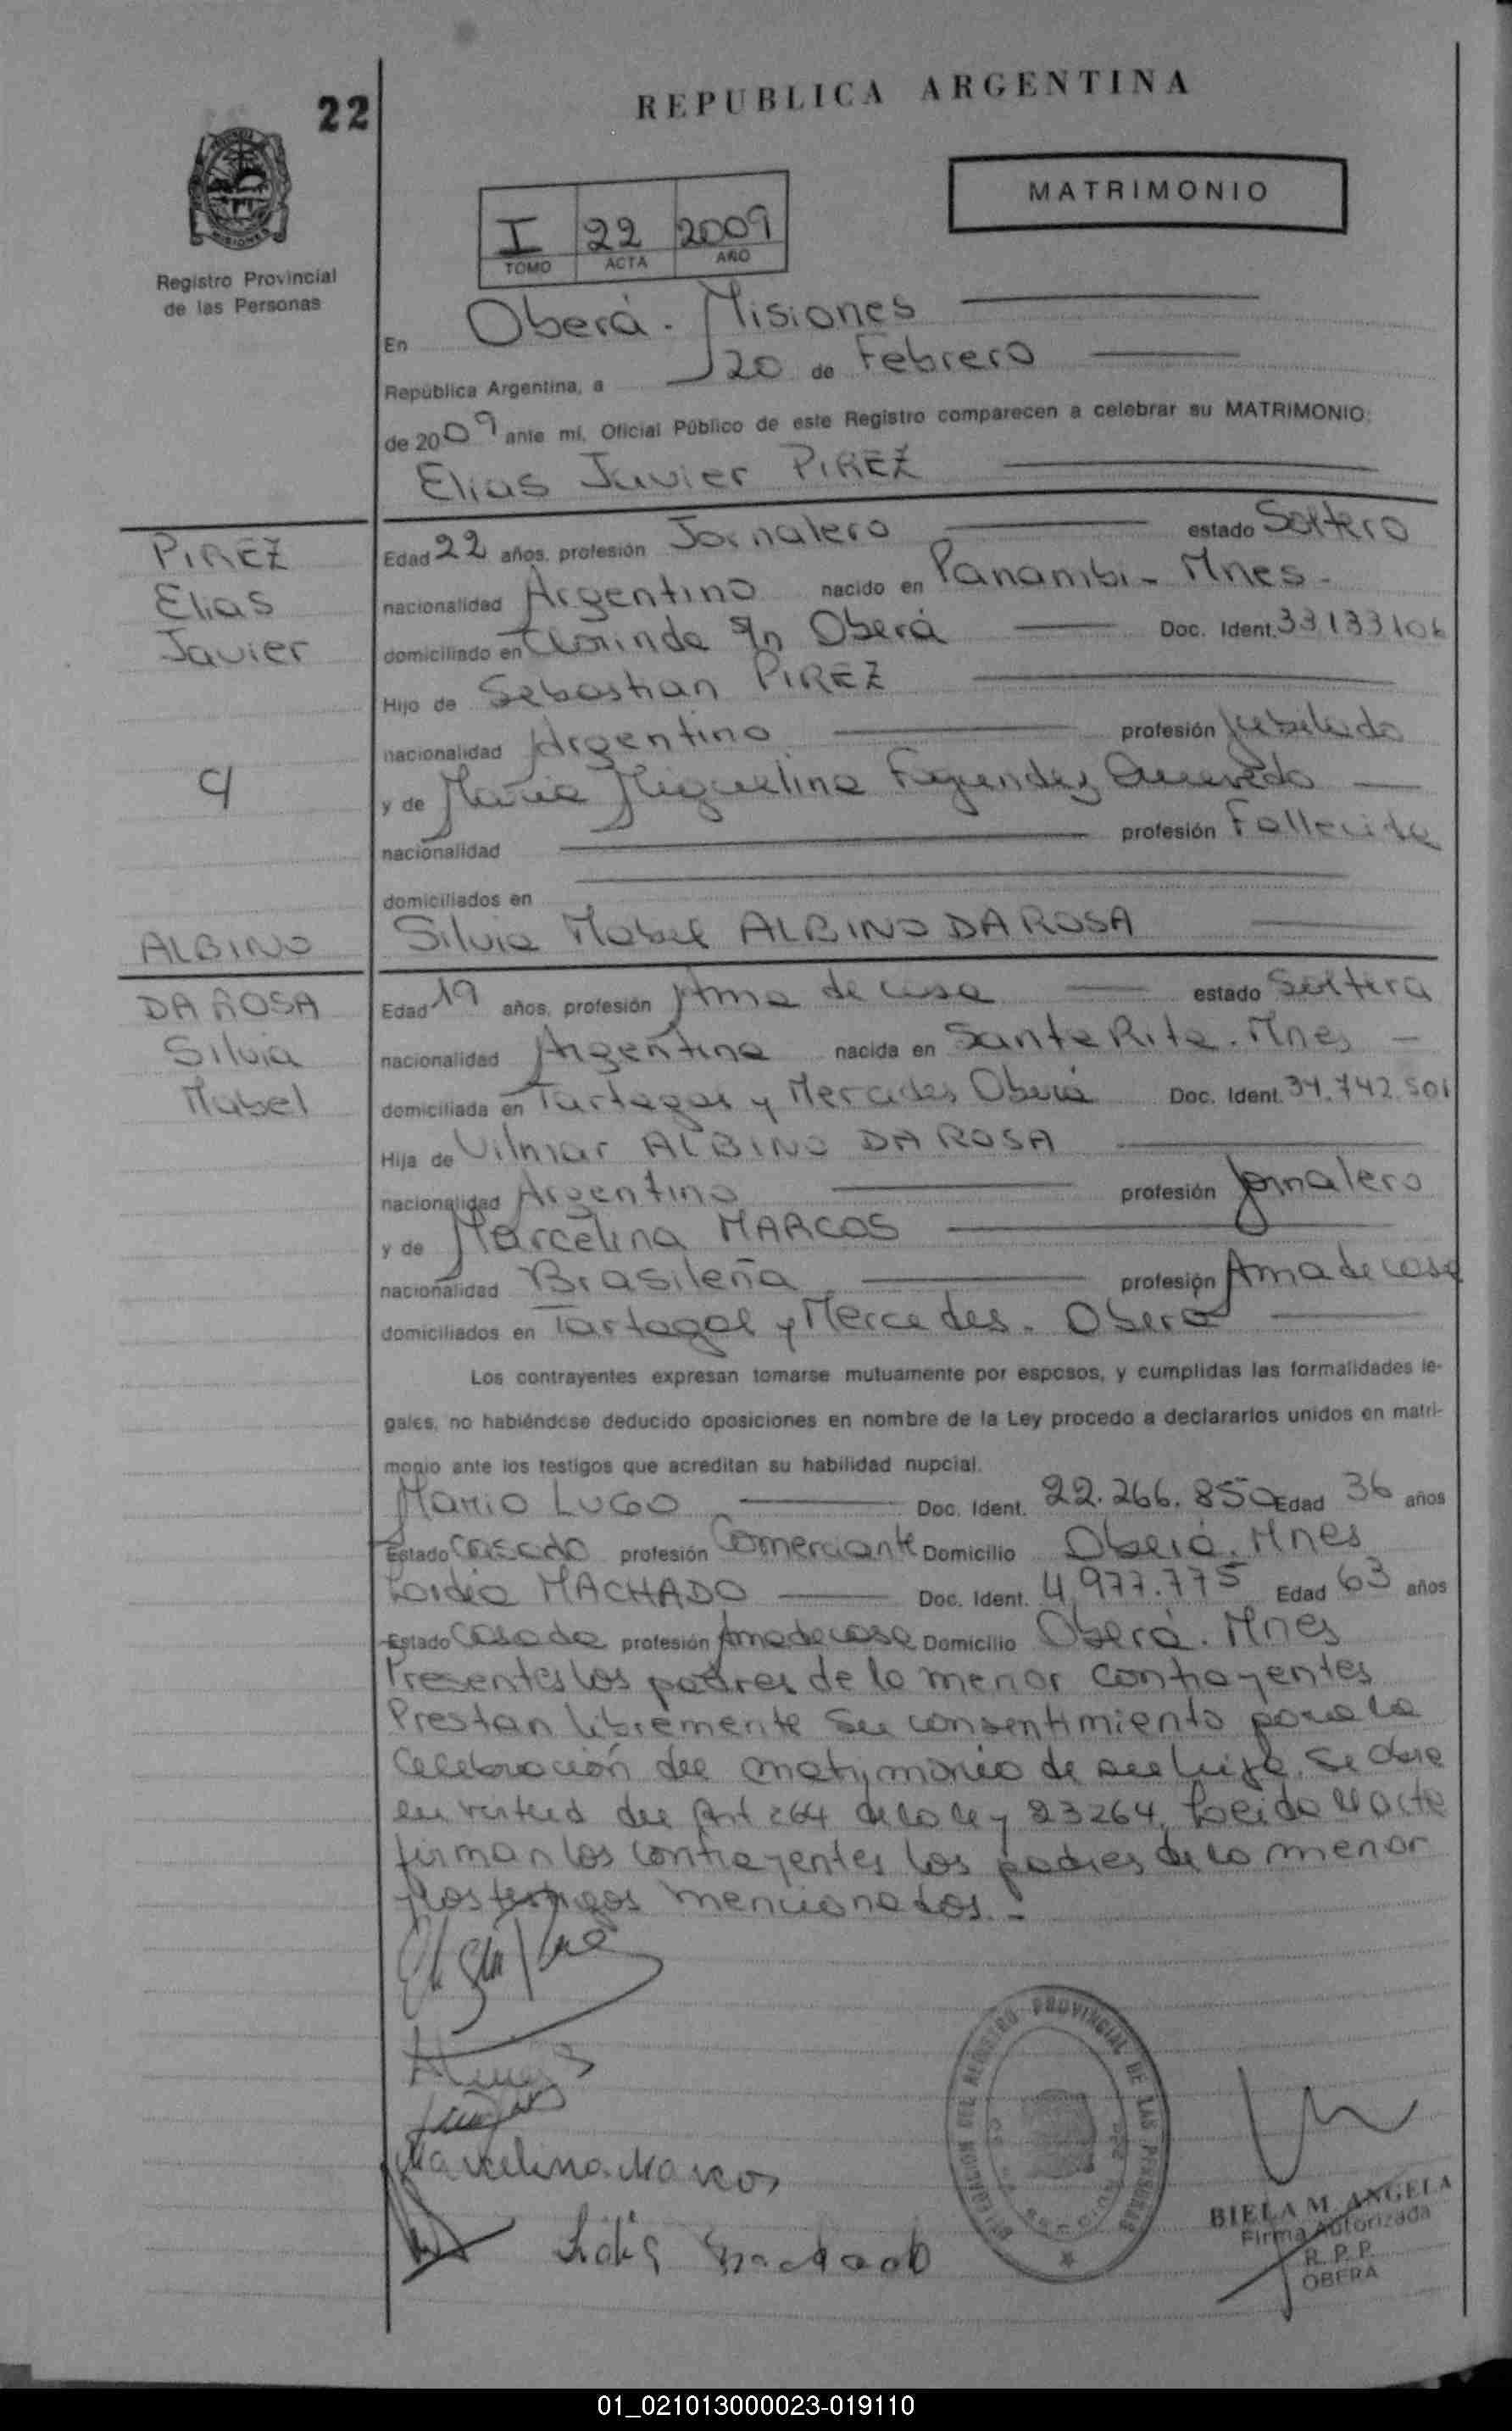 22
REPUBLICA ARGENTINA
MATRIMONIO
I 22 2009
TOMO ACTA AÑO
MISIONES
Registro Provincial
de las Personas
En Oberá. Misiones
República Argentina, a 20 de Febrero
de 2009 ante mí, Oficial Público de este Registro comparecen a celebrar su MATRIMONIO:
Elias Javier PIREZ
PIREZ
Elias
Javier
Edad 22 años, profesión Jornalero estado Soltero
nacionalidad Argentino nacido en Panambi - Mnes -
domiciliado en Clorinda s/n Oberá Doc. Ident. 33133106
Hijo de Sebastian PIREZ
nacionalidad Argentino profesión Jubilado
y de Maria Miguelina Fagundez
nacionalidad profesión Fallecida
domiciliados en
Silvia Mabel ALBINO DA ROSA
ALBINO
DA ROSA
Silvia
Mabel
Edad 19 años, profesión Ama de casa estado Soltera
nacionalidad Argentina nacida en Santa Rita. Mnes -
domiciliada en Tartagal y Mercedes Oberá Doc. Ident. 34.742.501
Hija de Vilmar ALBINO DA ROSA
nacionalidad Argentino profesión Jornalero
y de Marcelina MARCOS
nacionalidad Brasileña profesión Ama de casa
domiciliados en Tartagal y Mercedes. Oberá
Los contrayentes expresan tomarse mutuamente por esposos, y cumplidas las formalidades le-
gales, no habiéndose deducido oposiciones en nombre de la Ley procedo a declararlos unidos en matri-
monio ante los testigos que acreditan su habilidad nupcial.
Mario LUGO Doc. Ident. 22.266.850 Edad 36 años
Estado Casado profesión Comerciante Domicilio Oberá. Mnes
MACHADO Doc. Ident. 4.977.775 Edad 63 años
Estado Casada profesión Ama de casa Domicilio Oberá. Mnes
Presentes los padres de la menor contrayentes
Prestan libremente su consentimiento para la
Celebración del matrimonio de su hija. Se obra
en virtud del Art 264 de la ley 23264, Leida el acta
firman los contrayentes los padres de la menor
y los testigos mencionados.-
Marcelina Marcos
Lidia Machado
DELEGACION DEL REGISTRO PROVINCIAL DE LAS PERSONAS
BIELA M. ANGELA
Firma Autorizada
R. P. P.
OBERA
01_021013000023-019110